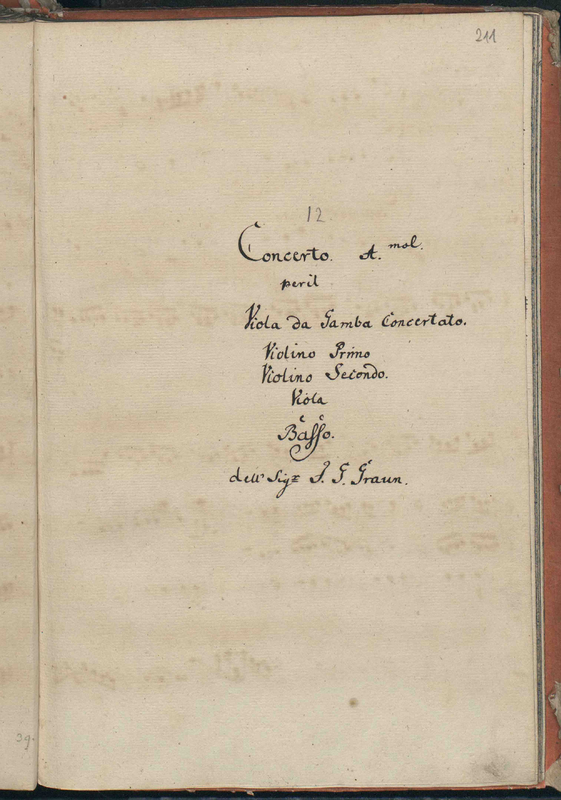 211
12
Concerto. A. mol.
peril
Viola da Gamba Concertato.
Violino Primo
Violino Secondo.
Viola
è
Basso.
dell' Sigr J. G. Graun.
39.